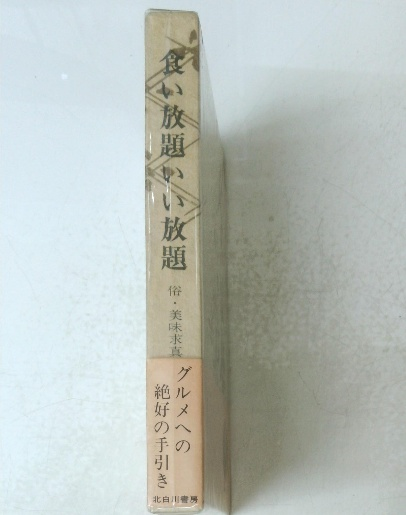 食い放題いい放題
俗・美味求真
グルメへの
絶好の手引き
北白川書房